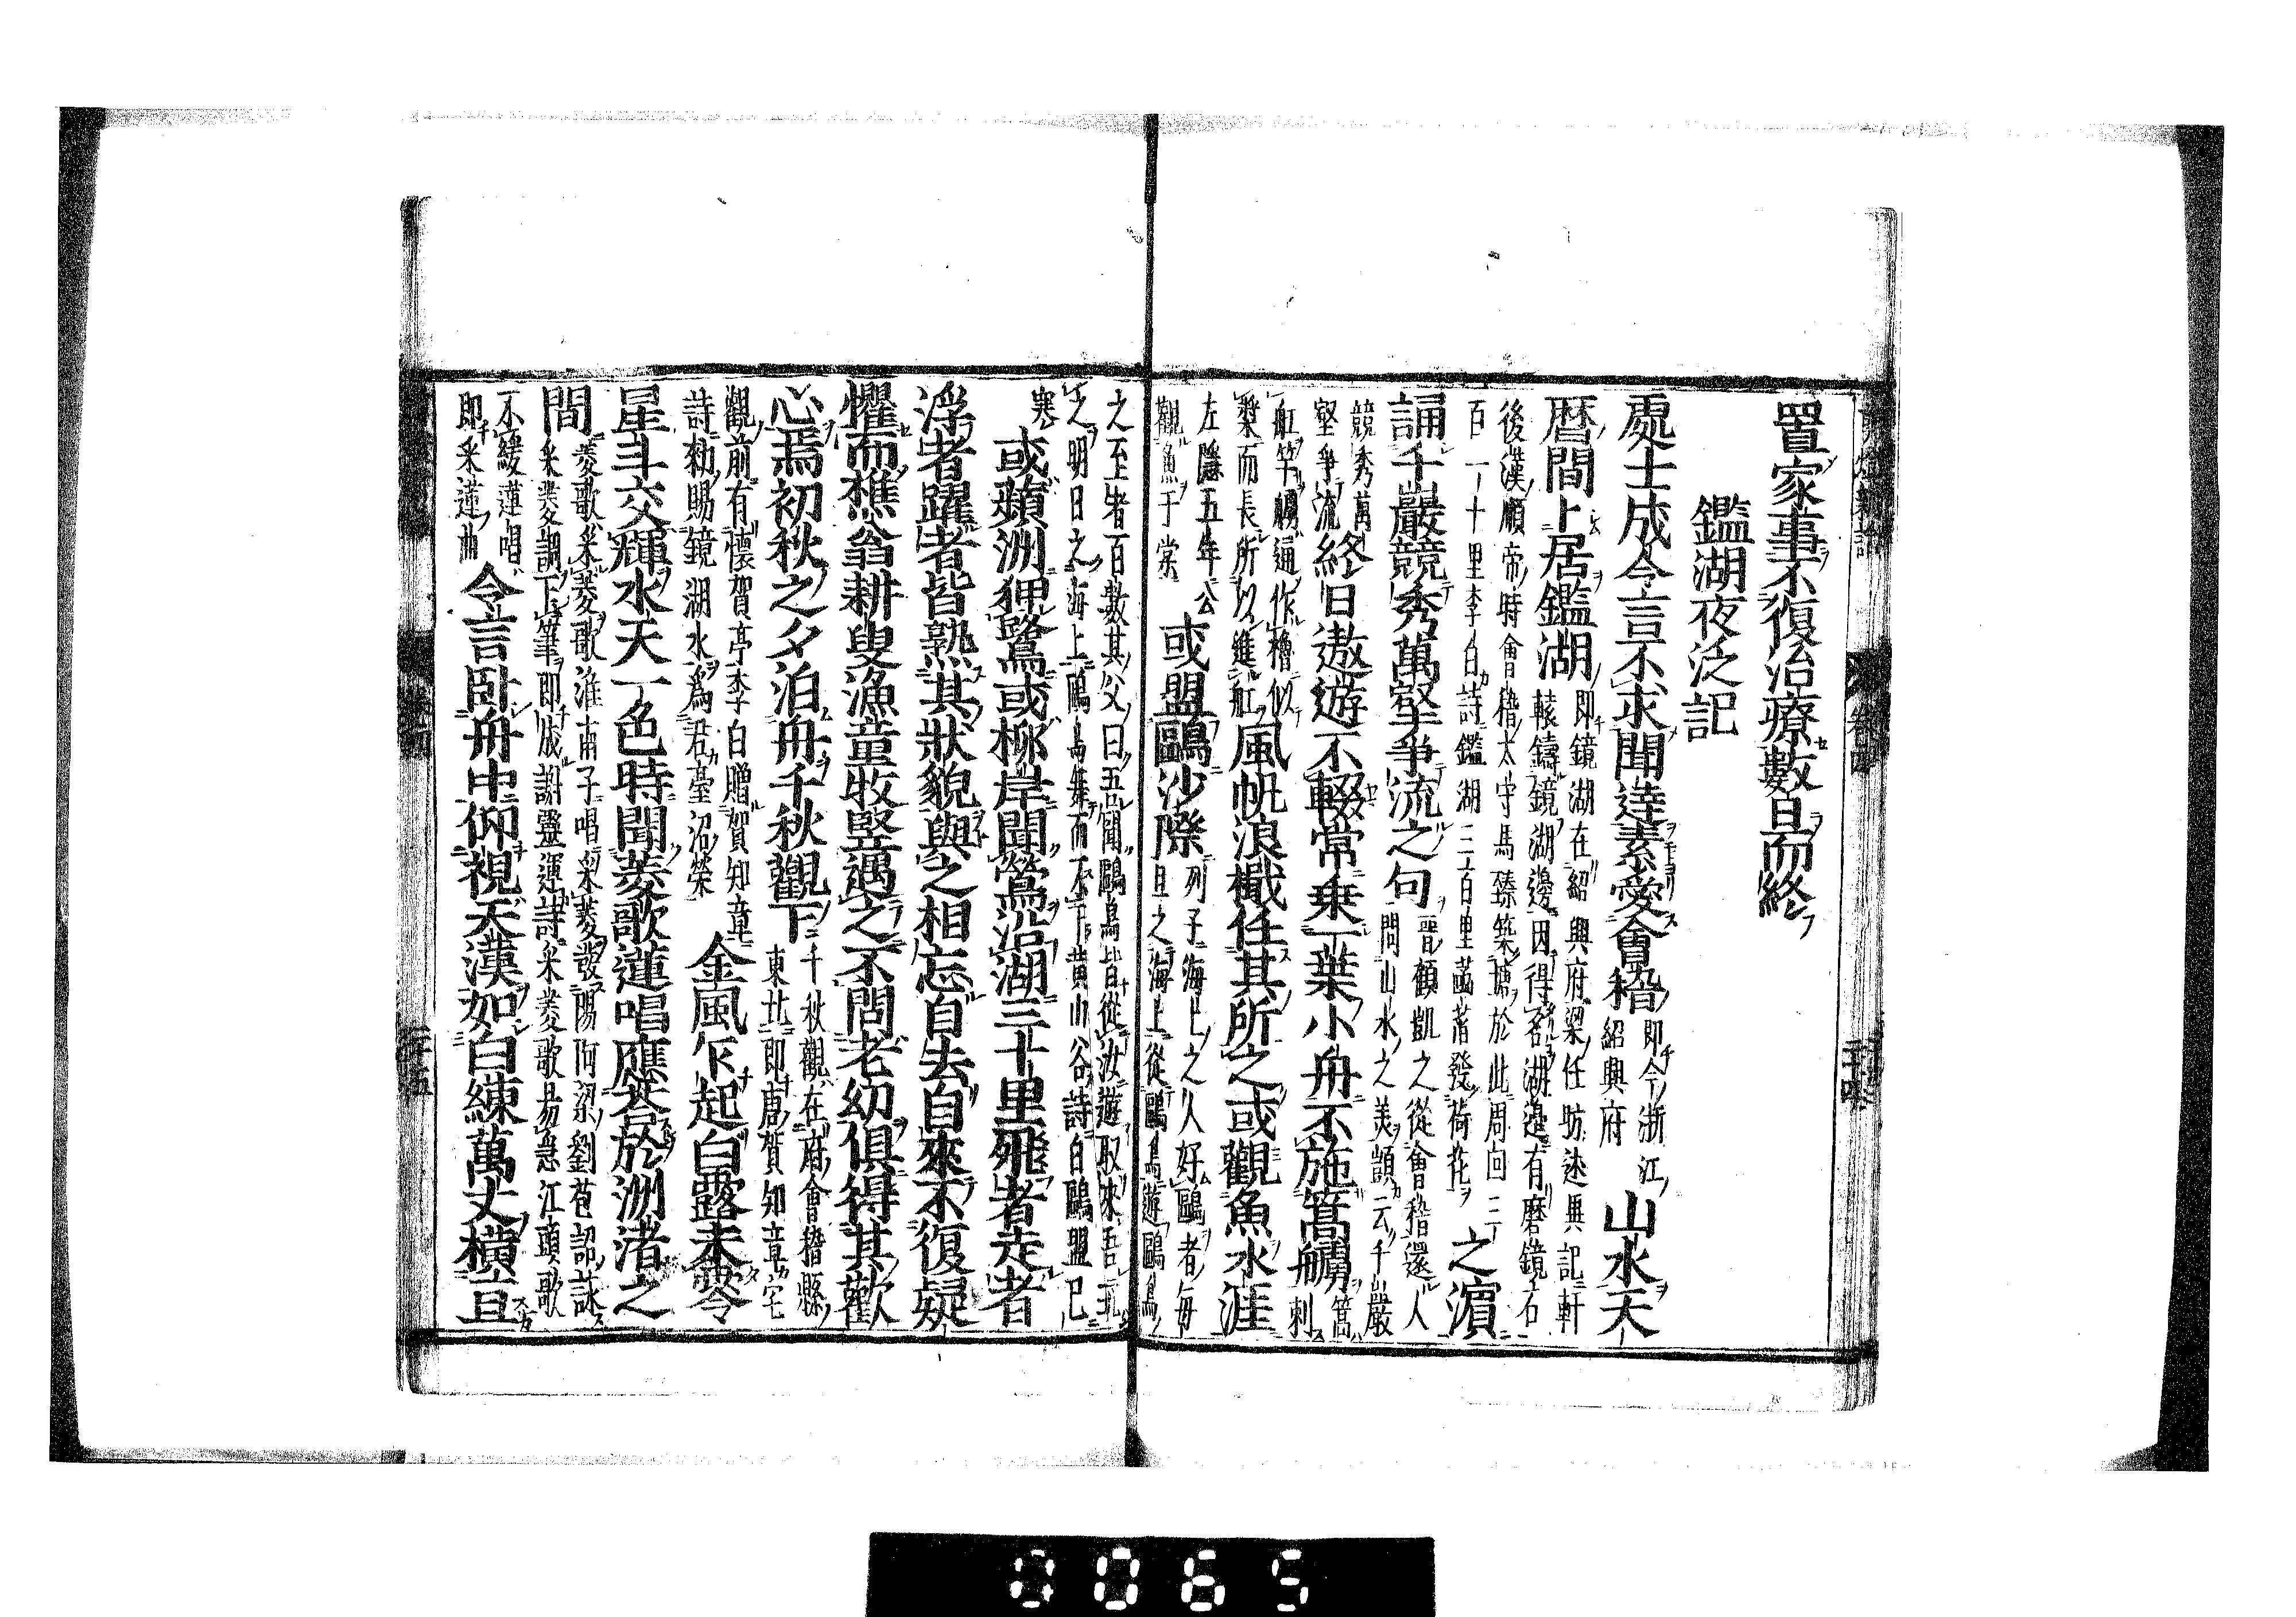 置家事不復治療數日而終
鑑湖夜泛記
處士成令言不求聞達素愛會稽
即今浙江
紹興府
山水天
曆間卜居鑑湖
即鏡湖在紹興府梁任昉述異記軒
轅鑄鏡湖邊因得名湖邊有磨鏡石
後漢順帝時會稽太守馬臻築塘於此周回三
百一十里李白詩鑑湖三百里菡萏發荷花
之濵
誦千巖競秀萬壑爭流之句
晋顧凱之從會稽還人
問山水之美顗云千巖
競秀萬
壑爭流
終日遨遊不輟常乗一葉小舟不施篙艣
篙
刺
舡竿艣通作櫓似
槳而長所以進舡
風帆浪檝任其所之或觀魚水涯
左隱五年公
觀魚于棠
或盟鷗沙際
列子海上之人好鷗者每
旦之海上從鷗鳥遊鷗鳥
之至者百數其父曰吾聞鷗鳥皆從汝遊取來吾玩
之明日之海上鷗鳥舞而不下黄山谷詩白鷗盟已
寒
或蘋洲狎鷺或柳岸聞鶯沿湖三十里飛者走者
浮者躍者皆熟其狀貌與之相忘自去自來不復疑
懼而樵翁耕叟漁童牧竪遇之不問老幼俱得其歡
心焉初秋之夕泊舟千秋觀下
千秋觀在府會稽縣
東北即唐賀知章宅
觀前有懷賀亭李白贈賀知章
詩勑賜鏡湖水爲君臺沼榮
金風乍起白露未零
星斗交輝水天一色時聞菱歌蓮唱應答於洲渚之
間
菱歌采菱歌淮南子唱采菱發陽阿梁劉苞詔詠
采菱調下筆即成謝靈運詩采菱歌易急江頭歌
不緩蓮唱
即采蓮曲
令言卧舟中仰視天漢如白練萬丈横亘